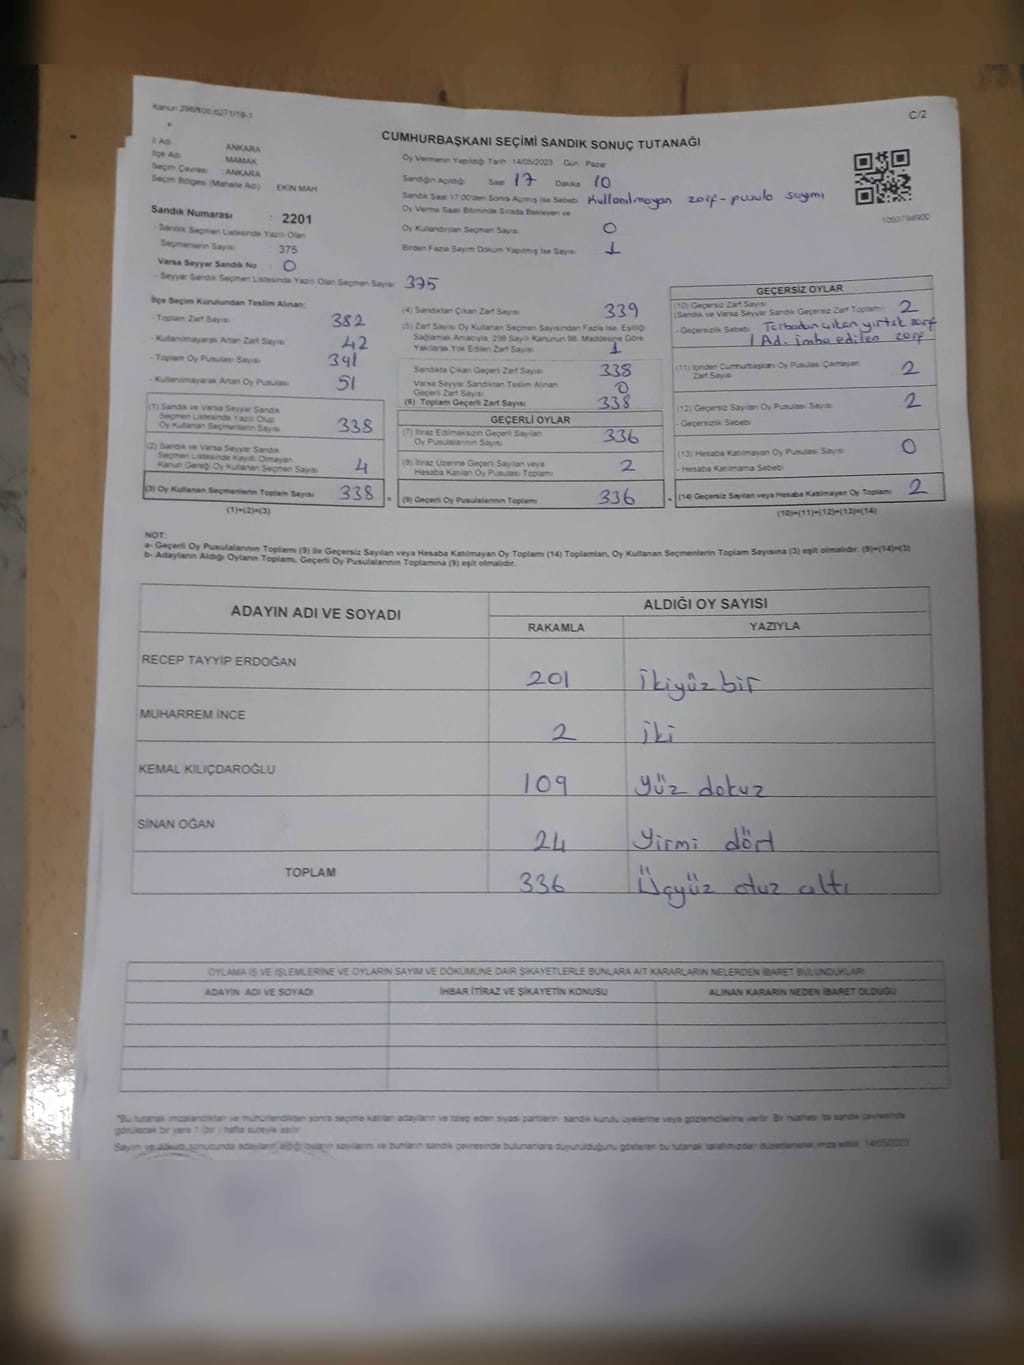 Kanun 298/105,6271/18-1
C/2
CUMHURBAŞKANI SEÇİMİ SANDIK SONUÇ TUTANAĞI
İl Adı : ANKARA
İlçe Adı : MAMAK
Seçim Çevresi : ANKARA
Seçim Bölgesi (Mahalle Adı) EKİN MAH
Sandık Numarası : 2201
- Sandık Seçmen Listesinde Yazılı Olan
Seçmenlerin Sayısı : 375
Varsa Seyyar Sandık No : 0
- Seyyar Sandık Seçmen Listesinde Yazılı Olan Seçmen Sayısı 375
Oy Vermenin Yapıldığı Tarih 14/05/2023 Gün Pazar
Sandığın Açıldığı Saat 17 Dakika 10
Sandık Saat 17:00'den Sonra Açılmış İse Sebebi Kullanılmayan zarf - pusula sayımı
Oy Verme Saati Bitiminde Sırada Bekleyen ve
Oy Kullandırılan Seçmen Sayısı 0
Birden Fazla Sayım Döküm Yapılmış İse Sayısı 1
1093794900
İlçe Seçim Kurulundan Teslim Alınan:
- Toplam Zarf Sayısı 382
- Kullanılmayarak Artan Zarf Sayısı 42
- Toplam Oy Pusulası Sayısı 391
- Kullanılmayarak Artan Oy Pusulası 51
(1) Sandık ve Varsa Seyyar Sandık
Seçmen Listesinde Yazılı Olup
Oy Kullanan Seçmenlerin Sayısı 338
(2) Sandık ve Varsa Seyyar Sandık
Seçmen Listesinde Kayıtlı Olmayan
Kanun Gereği Oy Kullanan Seçmen Sayısı 4
(3) Oy Kullanan Seçmenlerin Toplam Sayısı 338 =
(1)+(2)=(3)
(4) Sandıktan Çıkan Zarf Sayısı 339
(5) Zarf Sayısı Oy Kullanan Seçmen Sayısından Fazla İse, Eşitliği
Sağlamak Amacıyla, 298 Sayılı Kanunun 98. Maddesine Göre
Yakılarak Yok Edilen Zarf Sayısı 1
Sandıkta Çıkan Geçerli Zarf Sayısı 338
Varsa Seyyar Sandıktan Teslim Alınan
Geçerli Zarf Sayısı 0
(6) Toplam Geçerli Zarf Sayısı 338
GEÇERLİ OYLAR
(7) İtiraz Edilmeksizin Geçerli Sayılan
Oy Pusulalarının Sayısı 336
(8) İtiraz Üzerine Geçerli Sayılan veya
Hesaba Katılan Oy Pusulası Toplamı 2
(9) Geçerli Oy Pusulalarının Toplamı 336 +
GEÇERSİZ OYLAR
(10) Geçersiz Zarf Sayısı
(Sandık ve Varsa Seyyar Sandık Geçersiz Zarf Toplamı) 2
- Geçersizlik Sebebi Torbadan çıkan yırtık zarf
1 Ad. imha edilen zarf
(11) İçinden Cumhurbaşkanı Oy Pusulası Çıkmayan
Zarf Sayısı 2
(12) Geçersiz Sayılan Oy Pusulası Sayısı 2
- Geçersizlik Sebebi
(13) Hesaba Katılmayan Oy Pusulası Sayısı 0
- Hesaba Katılmama Sebebi
(14) Geçersiz Sayılan veya Hesaba Katılmayan Oy Toplamı 2
(10)+(11)+(12)+(13)=(14)
NOT:
a- Geçerli Oy Pusulalarının Toplamı (9) ile Geçersiz Sayılan veya Hesaba Katılmayan Oy Toplamı (14) Toplamları, Oy Kullanan Seçmenlerin Toplam Sayısına (3) eşit olmalıdır. (9)+(14)=(3)
b- Adayların Aldığı Oyların Toplamı, Geçerli Oy Pusulalarının Toplamına (9) eşit olmalıdır.
ADAYIN ADI VE SOYADI
ALDIĞI OY SAYISI
RAKAMLA YAZIYLA
RECEP TAYYİP ERDOĞAN 201 İkiyüz bir
MUHARREM İNCE 2 İki
KEMAL KILIÇDAROĞLU 109 Yüz dokuz
SİNAN OĞAN 24 Yirmi dört
TOPLAM 336 Üçyüz otuz altı
OYLAMA İŞ VE İŞLEMLERİNE VE OYLARIN SAYIM VE DÖKÜMÜNE DAİR ŞİKAYETLERLE BUNLARA AİT KARARLARIN NELERDEN İBARET BULUNDUKLARI
ADAYIN ADI VE SOYADI İHBAR İTİRAZ VE ŞİKAYETİN KONUSU ALINAN KARARIN NEDEN İBARET OLDUĞU
"Bu tutanak imzalandıktan ve mühürlendikten sonra seçime katılan adayların ve talep eden siyasi partilerin sandık kurulu üyelerine veya gözlemcilerine verilir. Bir nüshası da sandık çevresinde
görülecek bir yere 1 (bir ) hafta süreyle asılır
Sayım ve döküm sonucunda adayların aldığı oyların sayılarını ve bunların sandık çevresinde bulunanlara duyurulduğunu gösteren bu tutanak tarafımızdan düzenlenerek imza edildi. 14/05/2023